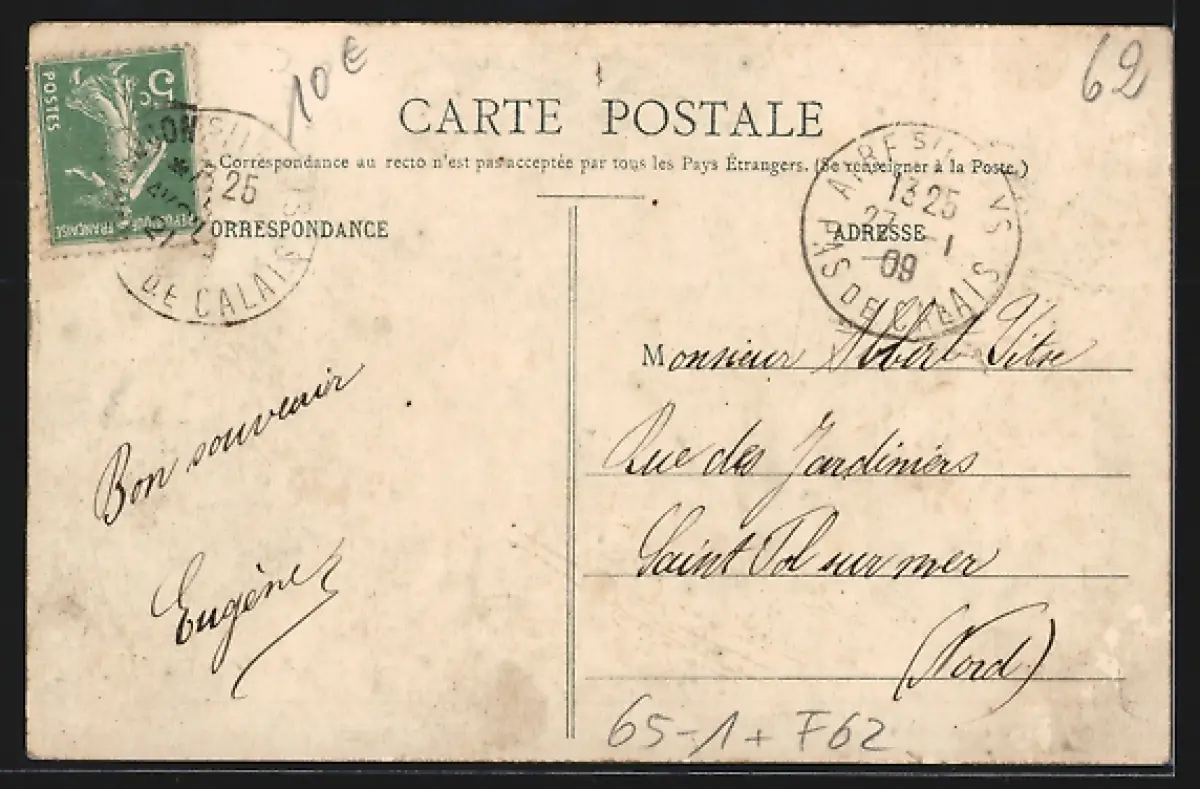 10€
62
CARTE POSTALE
La Correspondance au recto n'est pas acceptée par tous les Pays Étrangers. (Se renseigner à la Poste.)
5c
POSTES
REPUBLIQUE FRANÇAISE
13 25
DE CALAIS
CORRESPONDANCE
ADRESSE
13 25
27 - 1
09
PAS DE CALAIS
Monsieur Albert
Rue des Jardiniers
Saint Pol sur mer
(Nord)
Bon souvenir
Eugène
65-1+ F62